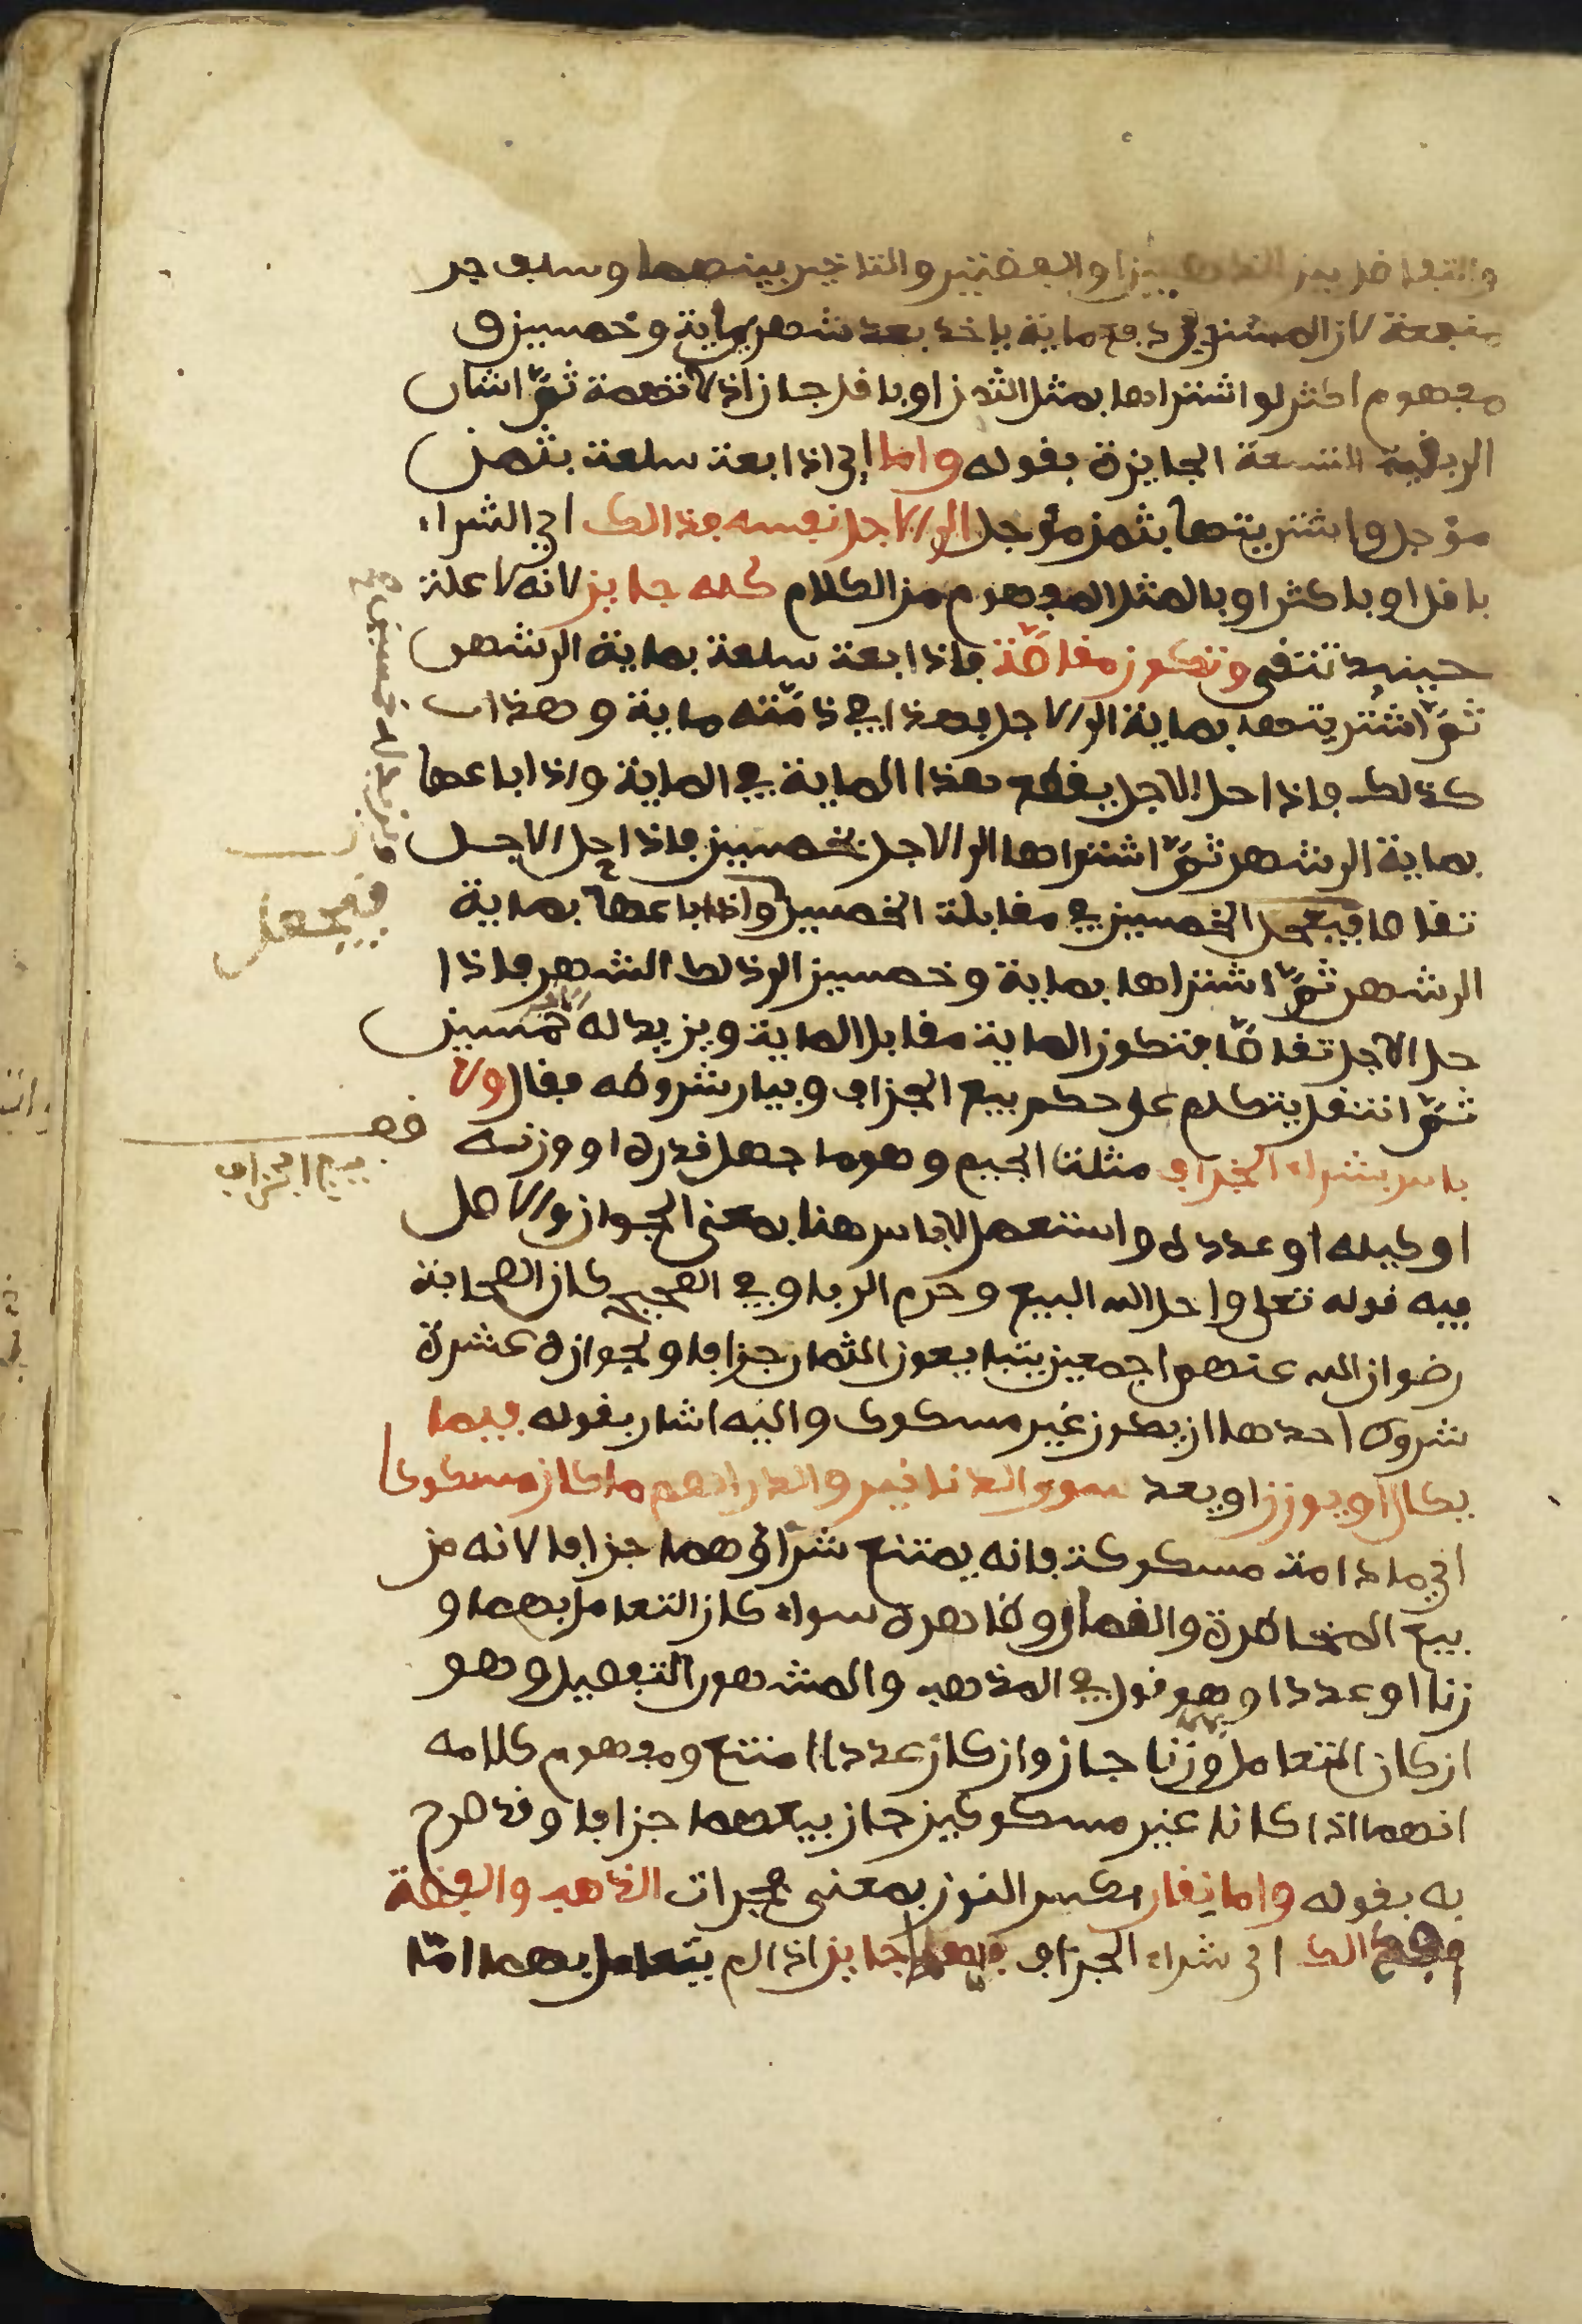 والتفاضل بين الذهبين او الفضتين والتاخير بينهما وسلف جر
منفعة لان المشتري دفع ماية ياخذ بعد شهر ماية وخمسين و
مفهوم اكثر لو اشتراها بمثل الثمن او باقل جاز اذ لا تهمة ثمّ اشار
الى بقية التسعة الجايزة بقوله واما اي اذا ابعت سلعة بثمن
مؤجل واشتريتها بثمن مؤجل الى الاجل نفسه فذالك اي الشراء
باقل او باكثر او بالمثل المفهوم من الكلام كله جايز لانه لا علة
حينيذ تتقى وتكون مقاصّة فاذا ابعت سلعة بماية الى شهر
ثمّ اشتريتها بماية الى الاجل فهذا في ذمّته ماية وهذا
كذلك فاذا حل الاجل يقطع هذا الماية في الماية واذا باعها
بماية الى شهر ثمّ اشتراها الى الاجل بخمسين فاذا حل الاجل
تقاصا فيجعل الخمسين في مقابلة الخمسين واذا باعها بماية
فيجعل
الى شهر ثمّ اشتراها بماية وخمسين الى ذلك الشهر فاذا
حل الاجل تقاصّا فتكون الماية مقابل الماية ويزيد له خمسين
ثمّ انتقل يتكلم على حكم بيع الجزاف وبيان شروطه فقال ولا
باس بشراء الجزاف مثلث الجيم وهو ما جهل قدره او وزنه
بيع الجزاف
او كيله او عدده واستعمل لا باس هنا بمعنى الجواز والاصل
فيه قوله تعلى واحل الله البيع وحرم الربا وفي الصحيح كان الصحابة
رضوان الله عنهم اجمعين يتبايعون الثمار جزافا ولجوازه عشرة
شروط احدها ان يكون غير مسكوك واليه اشار بقوله فيما
يكال او يوزن او يعد سوى الدنانير والدراهم ما كان مسكوكا
اي ما دامت مسكوكة فانه يمتنع شراؤهما جزافا لانه من
بيع المخاطرة والقمار وظاهره سواء كان التعامل بهما و
زنا او عددا وهو قول في المذهب والمشهور التفصيل وهو
ان كان التعامل وزنا جاز وان كان عددا امتنع ومفهوم كلامه
انهما اذا كانا غير مسكوكين جاز بيعهما جزافا وقد صرح
به بقوله واما نقار بكسر النون بمعنى فجرات الذهب والفضة
فذالك اي شراء الجزاف فيهما جايز اذا لم يتعامل بهما امّا